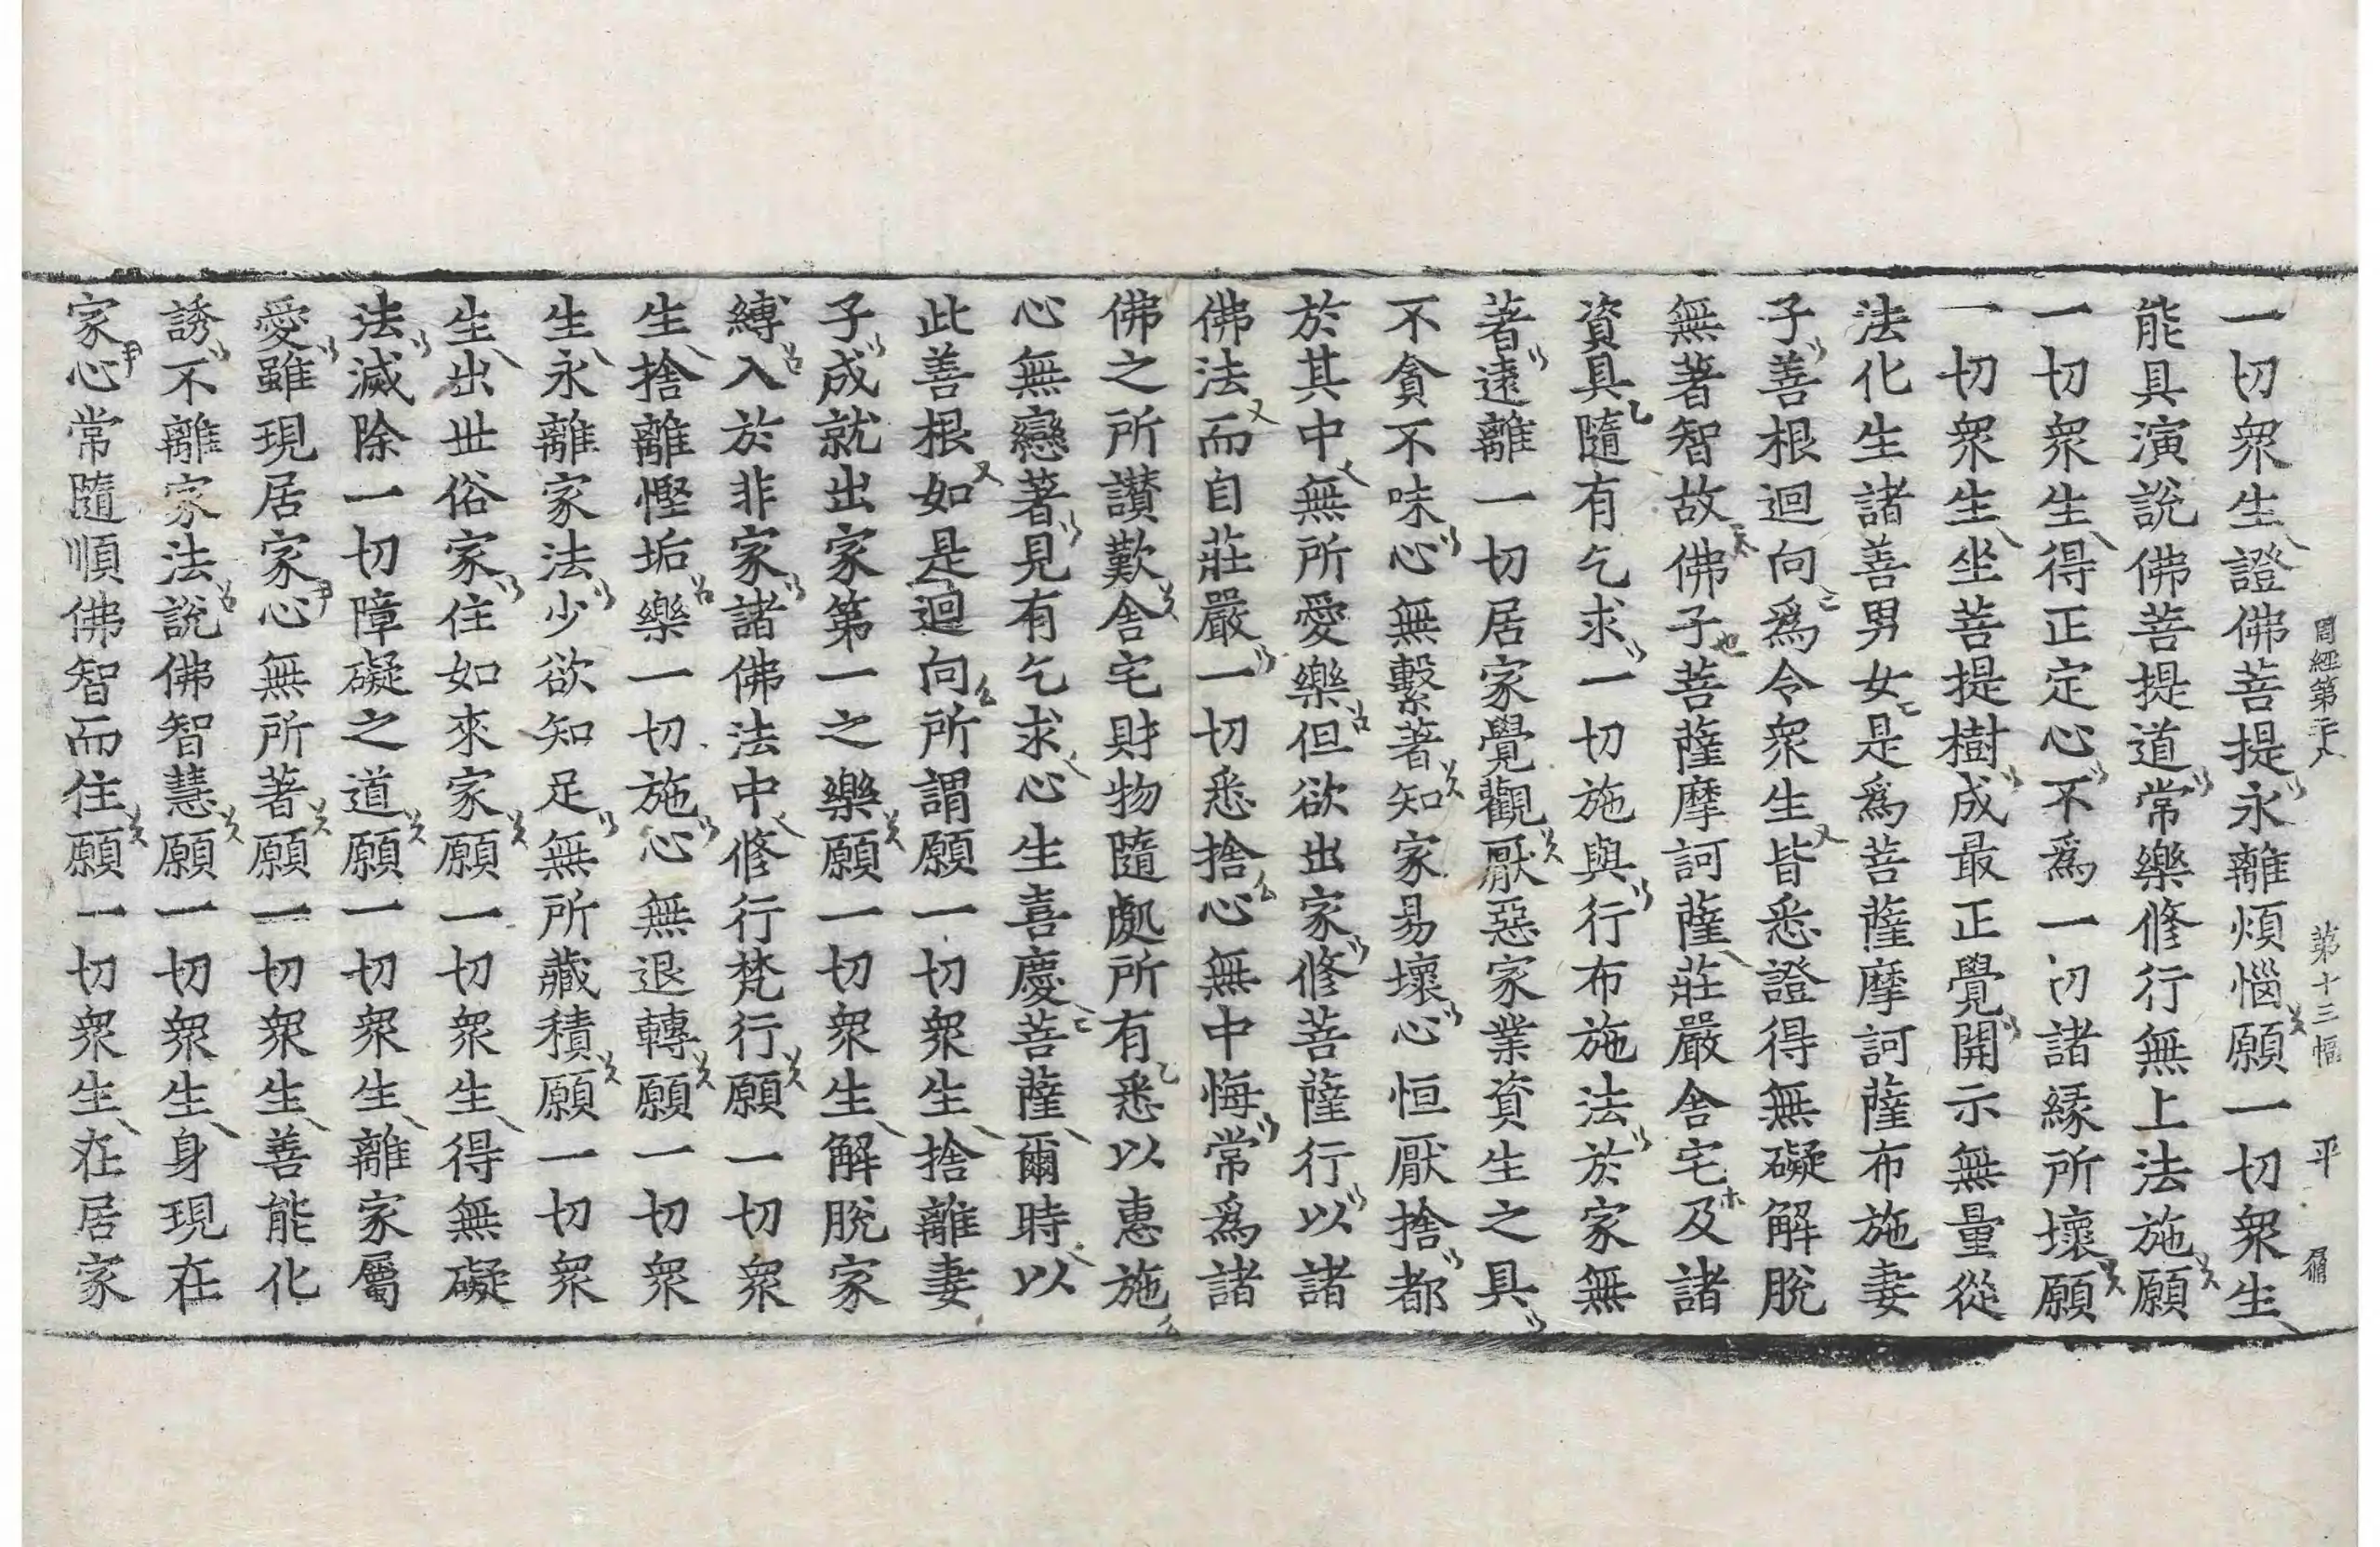 周經第二十八 第十三幅 平
一切衆生證佛菩提永離煩惱願一切衆生
能具演說佛菩提道常樂修行無上法施願
一切衆生得正定心不爲一切諸緣所壞願
一切衆生坐菩提樹成最正覺開示無量從
法化生諸善男女是爲菩薩摩訶薩布施妻
子善根迴向爲令衆生皆悉證得無礙解脫
無著智故佛子菩薩摩訶薩莊嚴舍宅及諸
資具隨有乞求一切施與行布施法於家無
著遠離一切居家覺觀厭惡家業資生之具
不貪不味心無繫著知家易壞心恒厭捨都
於其中無所愛樂但欲出家修菩薩行以諸
佛法而自莊嚴一切悉捨心無中悔常爲諸
佛之所讚歎舍宅財物隨處所有悉以惠施
心無戀著見有乞求心生喜慶菩薩爾時以
此善根如是迴向所謂願一切衆生捨離妻
子成就出家第一之樂願一切衆生解脫家
縛入於非家諸佛法中修行梵行願一切衆
生捨離慳垢樂一切施心無退轉願一切衆
生永離家法少欲知足無所藏積願一切衆
生出世俗家住如來家願一切衆生得無礙
法滅除一切障礙之道願一切衆生離家屬
愛雖現居家心無所著願一切衆生善能化
誘不離家法說佛智慧願一切衆生身現在
家心常隨順佛智而住願一切衆生在居家